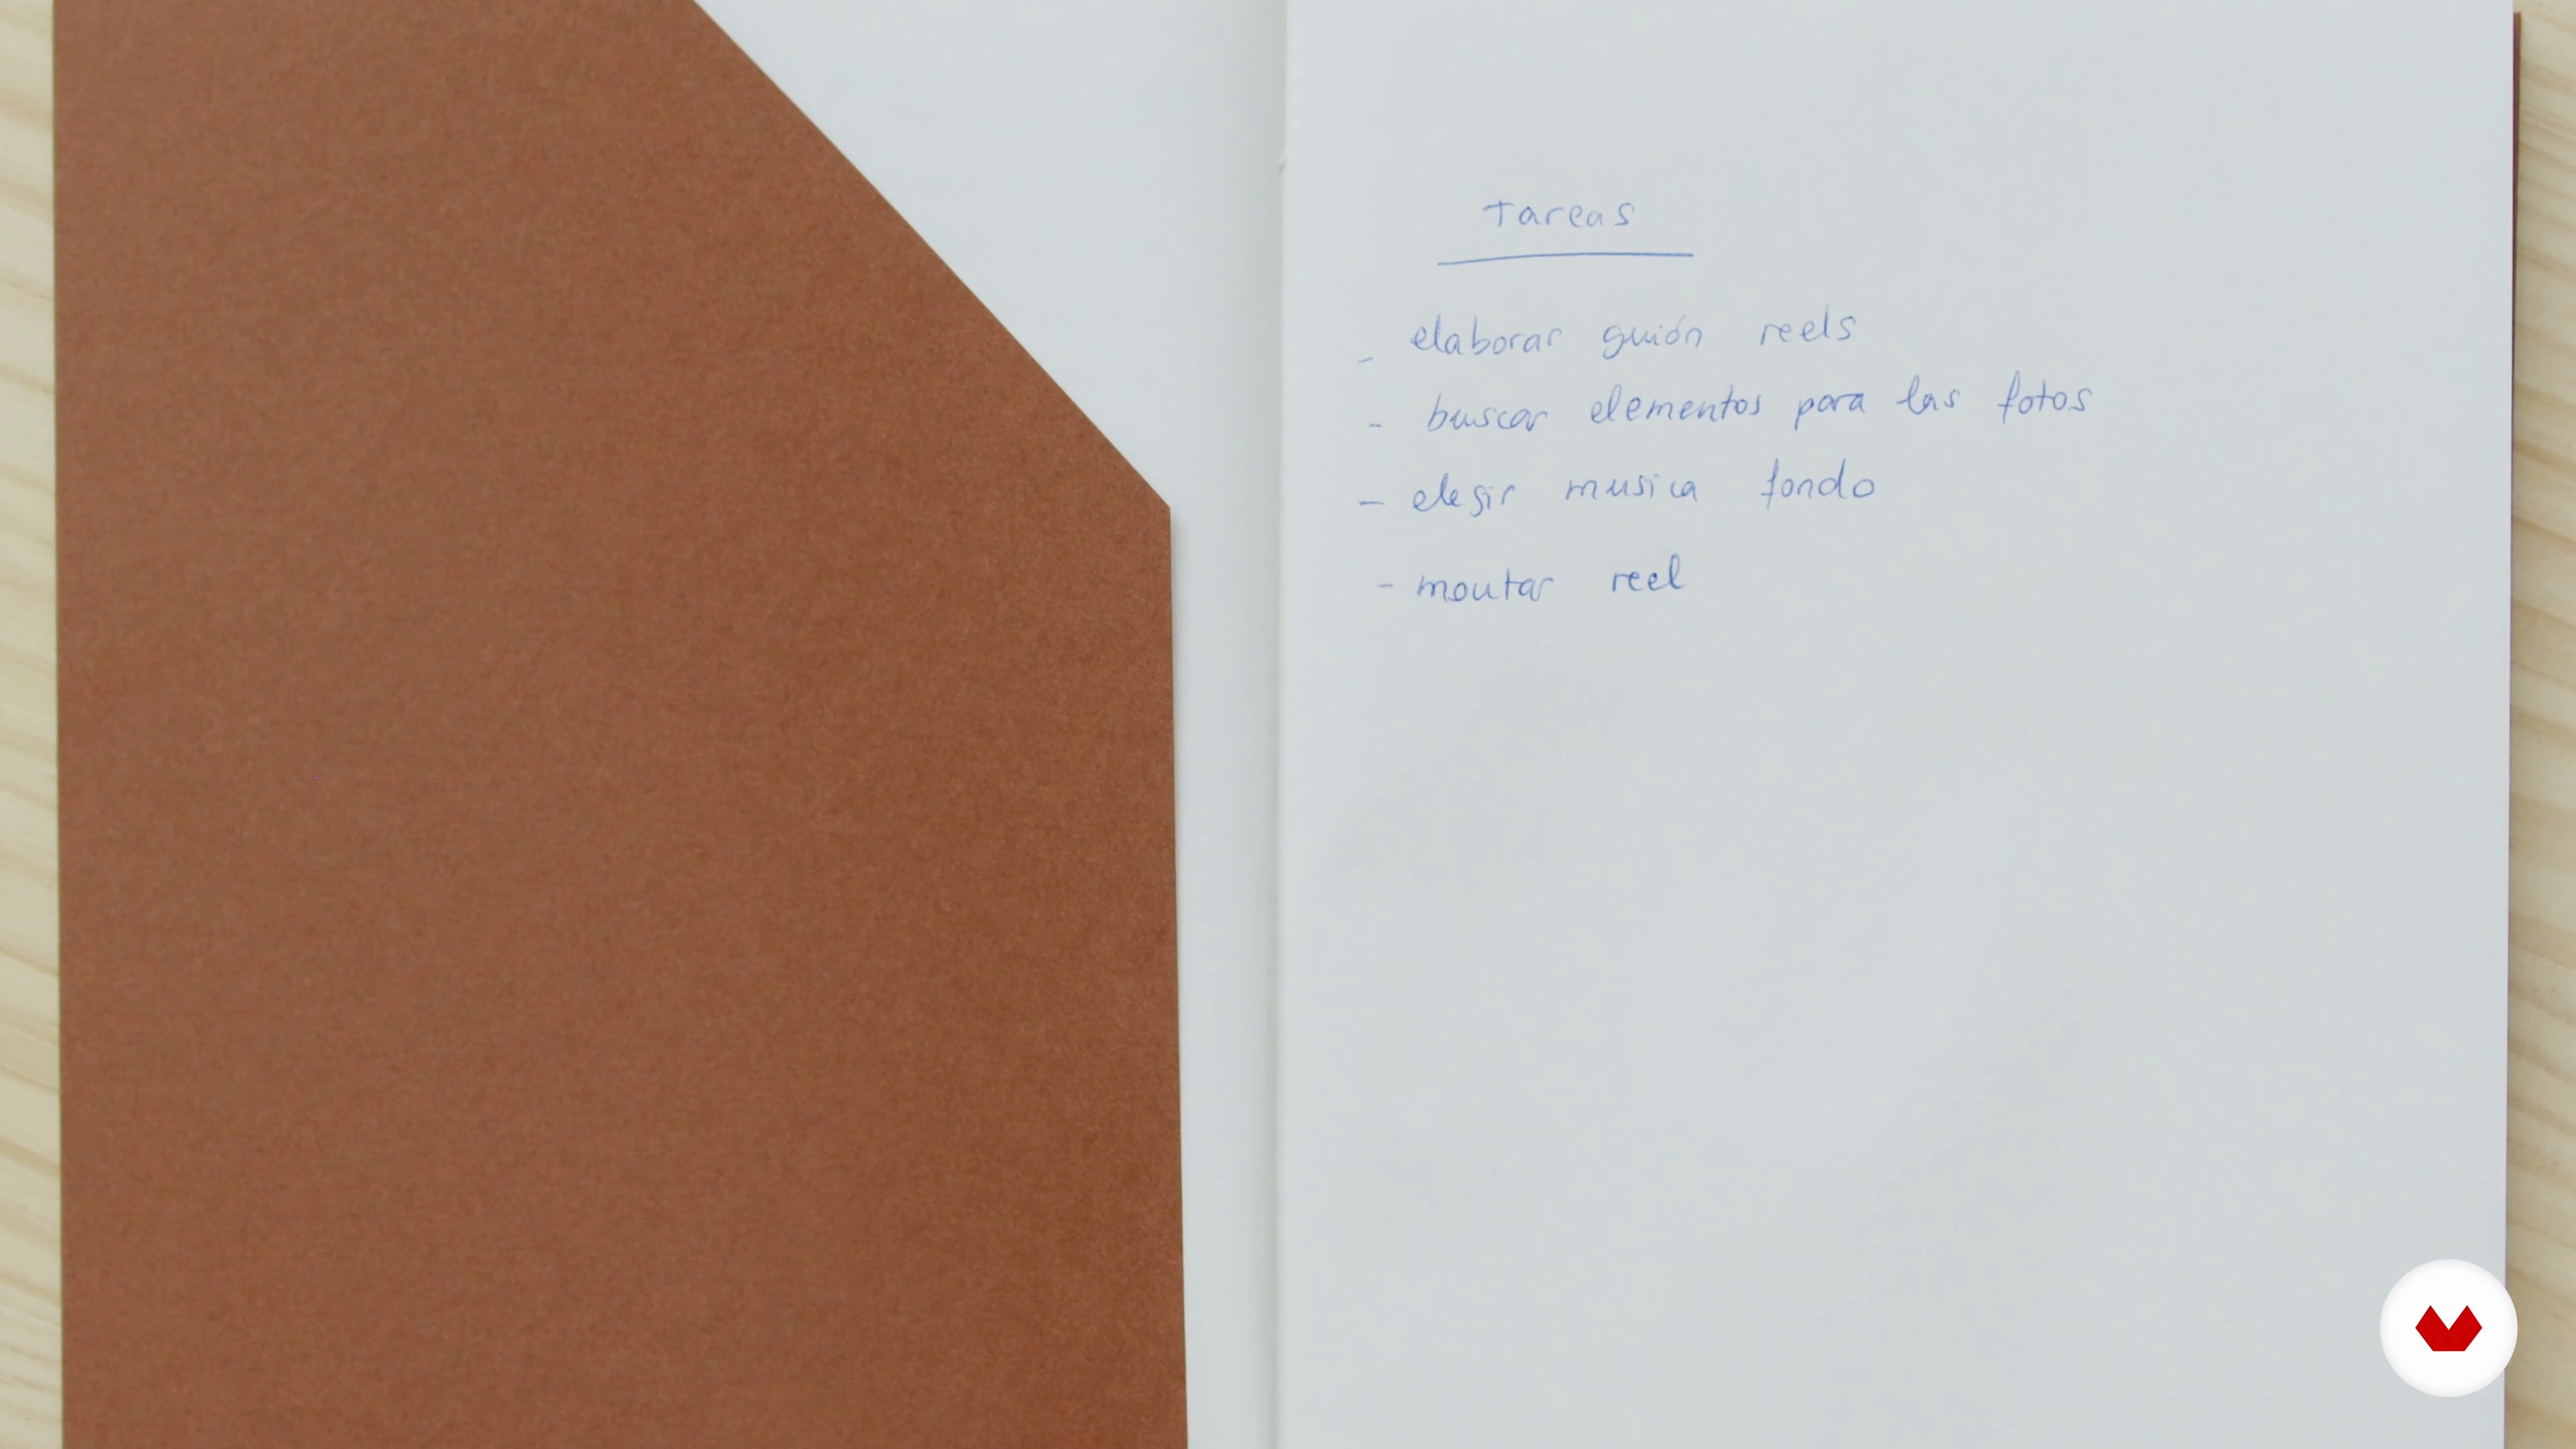 Tareas
- elaborar guión reels
- buscar elementos para las fotos
- elegir musica fondo
- montar reel